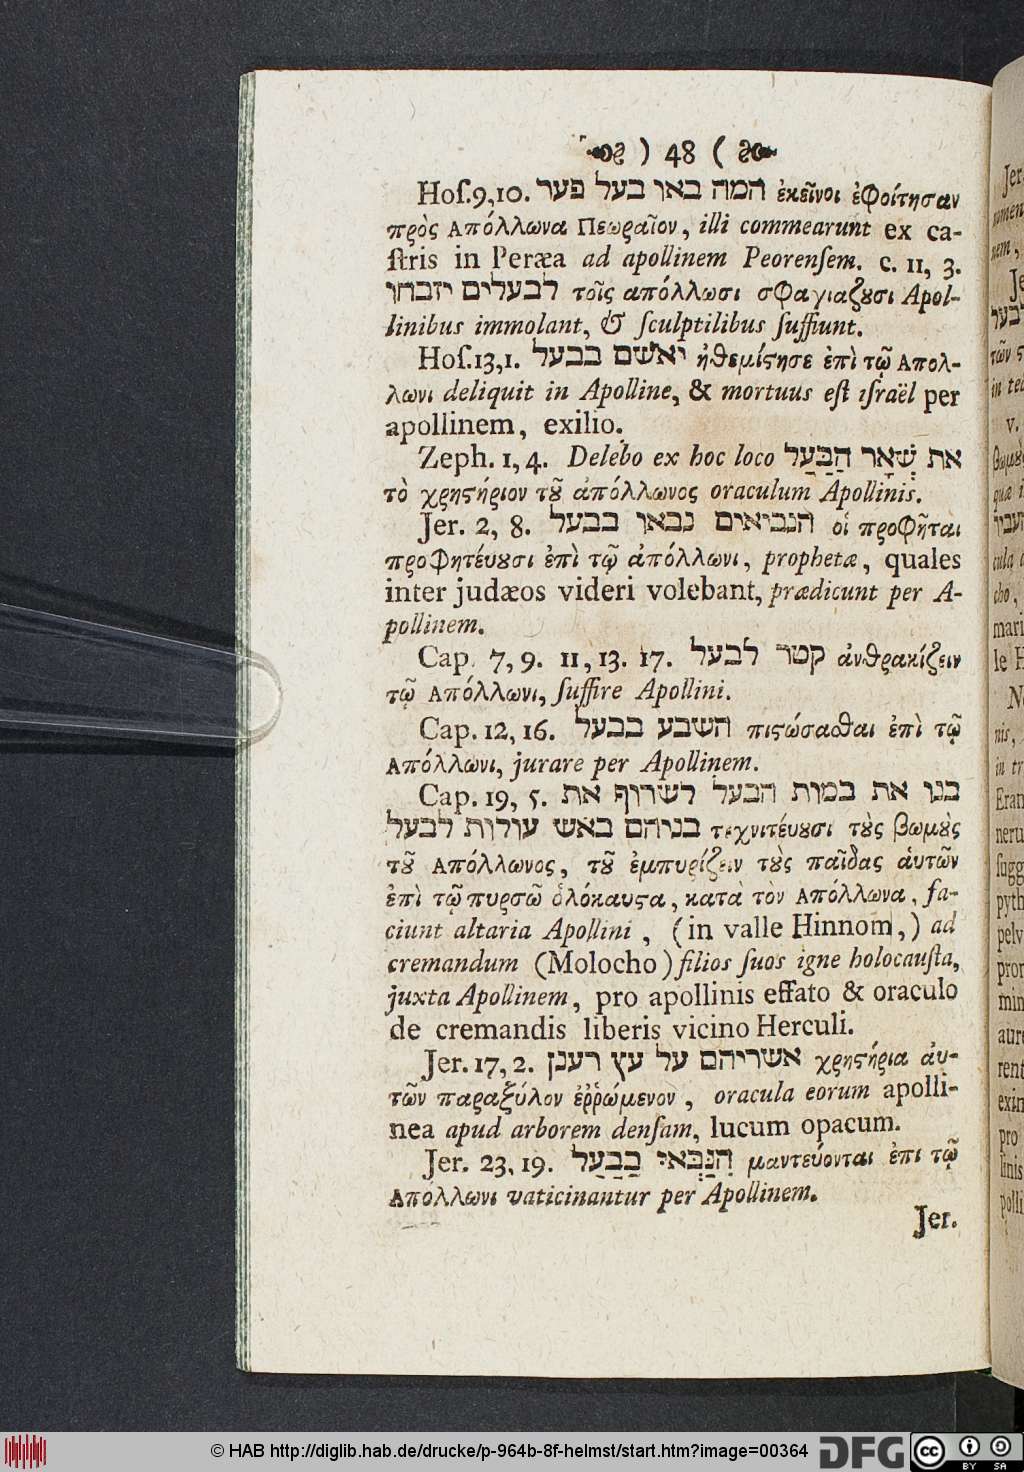 ) 48 (
Hoſ.9,10. המה באו בעל פער ἐκεῖνοι ἐφοίτησαν
πρὸς Απόλλωνα Πεωραῖον, illi commearunt ex ca-
ſtris in Peræa ad apollinem Peorenſem. c. 11, 3.
לבעלים יזבחו τοῖς απόλλωσι σφαγιαζȣσι Apol-
linibus immolant, & ſculptilibus ſuffiunt.
Hoſ.13,1. יאשם בבעל ἠθεμίςησε ἐπὶ τῷ Απολ-
λωνι deliquit in Apolline, & mortuus eſt iſraël per
apollinem, exilio.
Zeph. 1, 4. Delebo ex hoc loco את שְׁאָר הַבַּעַל
τὸ χρηςήριον τȣ͂ ἀπόλλωνος oraculum Apollinis.
Jer. 2, 8. הנביאים נבאו בבעל οἱ προφῆται
προφητέυȣσι ἐπὶ τῷ ἀπόλλωνι, prophetæ, quales
inter judæos videri volebant, prædicunt per A-
pollinem.
Cap. 7, 9. 11, 13. 17. קטר לבעל ἀνθρακίζειν
τῷ Απόλλωνι, ſuffire Apollini.
Cap. 12, 16. השבע בבעל πιςώσασθαι ἐπὶ τῷ
Απόλλωνι, jurare per Apollinem.
Cap. 19, 5. בנו את במות הבעל לשרוף את
בניהם באש עולות לבעל τεχνιτέυȣσι τȣ̀ς βωμȣ̀ς
τȣ͂ Απόλλωνος, τȣ͂ ἐμπυρίζειν τȣ̀ς παῖδας ἁυτῶν
ἐπὶ τῷ πυρσῶ ὁλόκαυςα, κατὰ τὸν Απόλλωνα, fa-
ciunt altaria Apollini, (in valle Hinnom,) ad
cremandum (Molocho) filios ſuos igne holocauſta,
juxta Apollinem, pro apollinis effato & oraculo
de cremandis liberis vicino Herculi.
Jer. 17, 2. אשריהם על עץ רענן χρηςήρια ἀυ-
τῶν παραξύλον ἐῤῥώμενον, oracula eorum apolli-
nea apud arborem denſam, lucum opacum.
Jer. 23, 19. הִנַּבְּאוּ בַבַּעַל μαντεύονται ἐπι τῷ
Απόλλωνι vaticinantur per Apollinem.
Jer.
© HAB http://diglib.hab.de/drucke/p-964b-8f-helmst/start.htm?image=00364 DFG cc BY SA